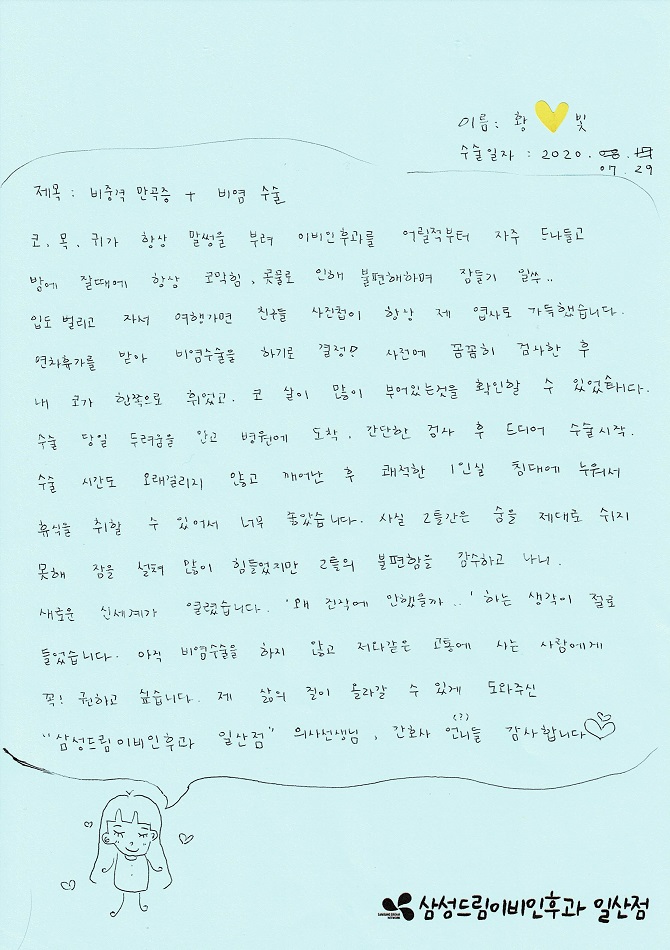 이름: 황 빛
수술일자 : 2020.
07. 29
제목 : 비중격 만곡증 + 비염 수술
코, 목, 귀가 항상 말썽을 부려 이비인후과를 어릴적부터 자주 드나들고
밤에 잘때에 항상 코막힘, 콧물로 인해 불편해하며 잠들기 일쑤..
입도 벌리고 자서 여행가면 친구들 사진첩이 항상 제 엽사로 가득했습니다.
연차휴가를 받아 비염수술을 하기로 결정? 사전에 꼼꼼히 검사한 후
내 코가 한쪽으로 휘었고, 코 살이 많이 부어있는것을 확인할 수 있었습니다.
수술 당일 두려움을 안고 병원에 도착, 간단한 검사 후 드디어 수술시작.
수술 시간도 오래걸리지 않고 깨어난 후 쾌적한 1인실 침대에 누워서
휴식을 취할 수 있어서 너무 좋았습니다. 사실 2틀간은 숨을 제대로 쉬지
못해 잠을 설쳐 많이 힘들었지만 2틀의 불편함을 감수하고 나니,
새로운 신세계가 열렸습니다. '왜 진작에 안했을까..' 하는 생각이 절로
들었습니다. 아직 비염수술을 하지 않고 저와같은 고통에 사는 사람에게
꼭! 권하고 싶습니다. 제 삶의 질이 올라갈 수 있게 도와주신
"삼성드림이비인후과 일산점" 의사선생님, 간호사 언니들(?) 감사합니다
삼성드림이비인후과 일산점